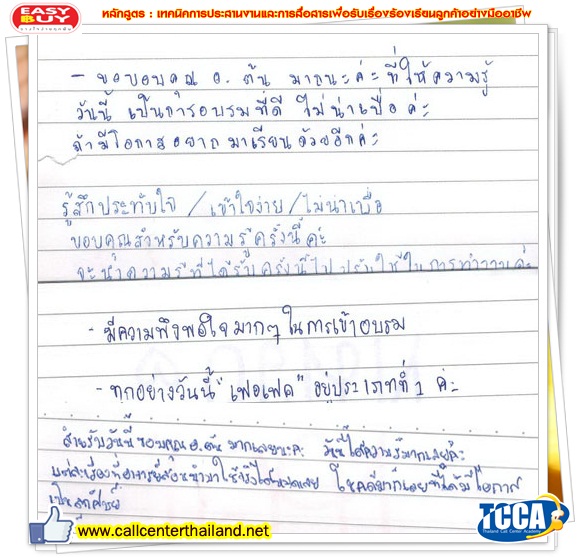 EASY BUY
หลักสูตร : เทคนิคการประสานงานและการสื่อสารเพื่อรับเรื่องร้องเรียนลูกค้าอย่างมืออาชีพ
- ขอบอบคุณ อ. ต้น มากนะค่ะ ที่ให้ความรู้
วันนี้ เป็นการอบรมที่ดี ไม่น่าเบื่อ ค่ะ
ถ้ามีโอกาสอยากมาเรียนด้วยอีกค่ะ
รู้สึกประทับใจ / เข้าใจง่าย / ไม่น่าเบื่อ
ขอบคุณสำหรับความรู้ครั้งนี้ค่ะ
จะนำความรู้ที่ได้รับครั้งนี้ไปปรับใช้ในการทำงานค่ะ
- มีความพึงพอใจมากๆ ในการเข้าอบรม
- ทุกอย่างวันนี้ "เฟอเฟค" อยู่ประเภทที่ 1 ค่ะ
สำหรับวันนี้ขอบคุณ อ.ต้น มากเลยนะคะ วันนี้ได้ความรู้มากเลยค่ะ
แต่ละเรื่องที่อาจารย์สอนนำมาใช้จริงได้หมดเลย โชคดีมากเลยที่ได้มีโอกาส
เป็นลูกศิษย์
www.callcenterthailand.net
TCCA
Thailand Call Center Academy